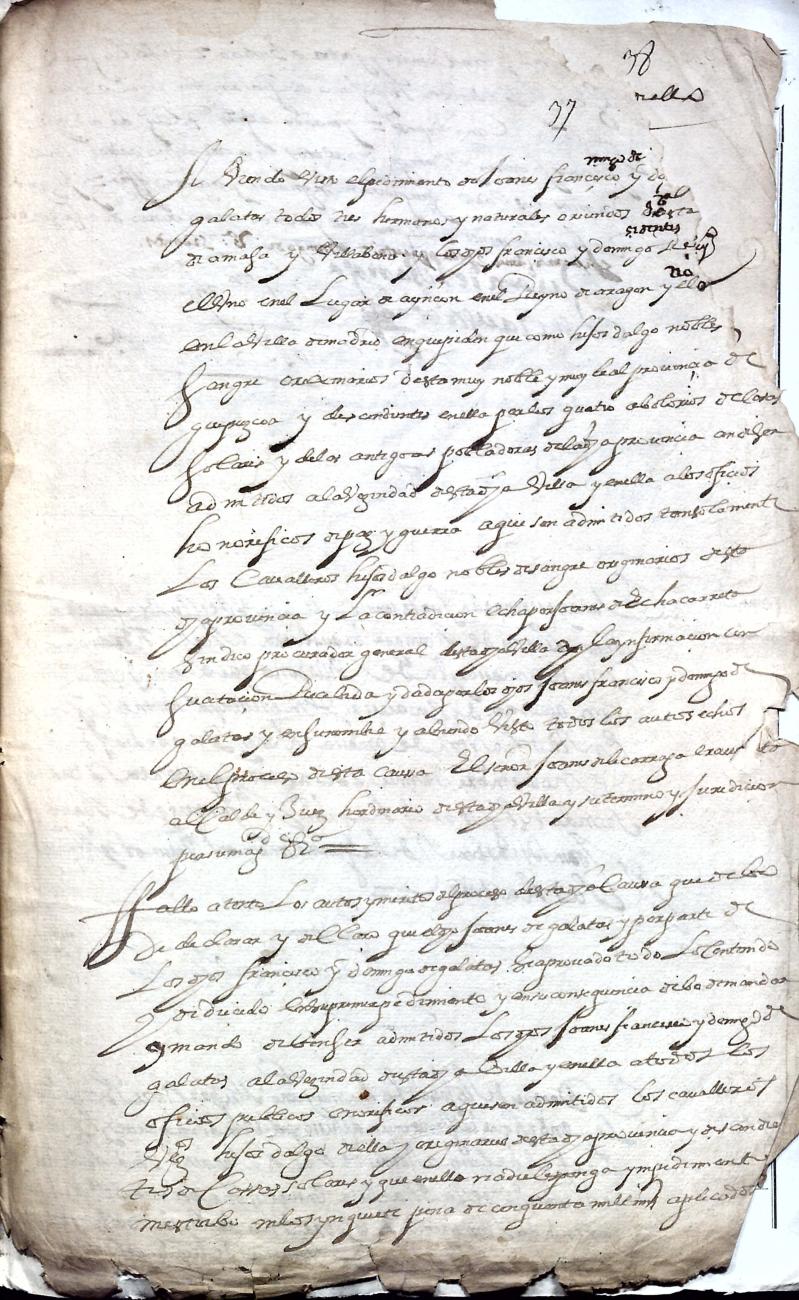 38
37
mingo de
Aviendo visto el pedimiento de Joanes françisco y do
galatas todos tres hermanos y naturales oriundos desta
de amasa y Villabona y los dhos francisco y domingo
el Uno en el Lugar de ayncon en el Reyno de aragon y el
en la Villa de madrid en que piden que como hijos dalgo nobles
sangre originarios desta muy noble y muy leal provincia de
guipuzcoa y descendientes en ella por los quatro abolorios de Casas
solares y de los antigoos pobladores de la dha provincia an de ser
admitidos a la Vezindad desta dha Villa y en ella a los oficios
honoreficos de paz y guerra a que son admitidos tan solamente
Los Cavalleros hijos dalgo nobles de sangre originarios desta
dha provincia y La contradicion echa por Joanes de Echacarreta
sindico procurador general desta dha Villa la ynformacion con
su citacion Recebida y dada por los dhos Joanes francisco y domingo de
galatas y en su nombre y abiendo Visto todos los autos echos
en el proceso desta causa El señor Joanes de
alCalde y Juez hordinario desta dha Villa y su termino y Juridicion
por su magd
Fallo atento Los autos y meritos del proceso desta dha Causa que debo
De declarar y declaro que el dho Joanes de galatas y por parte de
Los dhos françisco y domingo de galatas Se a provado todo Lo Contenido
y deducido en su primer pedimiento y en su consequencia debo de mandar
y mando deben ser admitidos Los dhos Joanes francisco y domingo de
galatas a la Vezindad desta dha Villa y en ella a todos los
oficios publicos onorificos a que son admitidos los cavalleros
hijos dalgo de ella y originarios desta dha provincia y descendien
tes de Cassas solares y que en ello nadie les ponga ympedimento
ni estorbo ni los ynquiete pena de cinquenta mill mrs aplicados